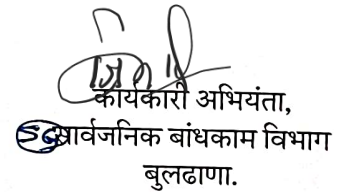 कार्यकारी अभियंता,
सार्वजनिक बांधकाम विभाग
बुलढाणा.